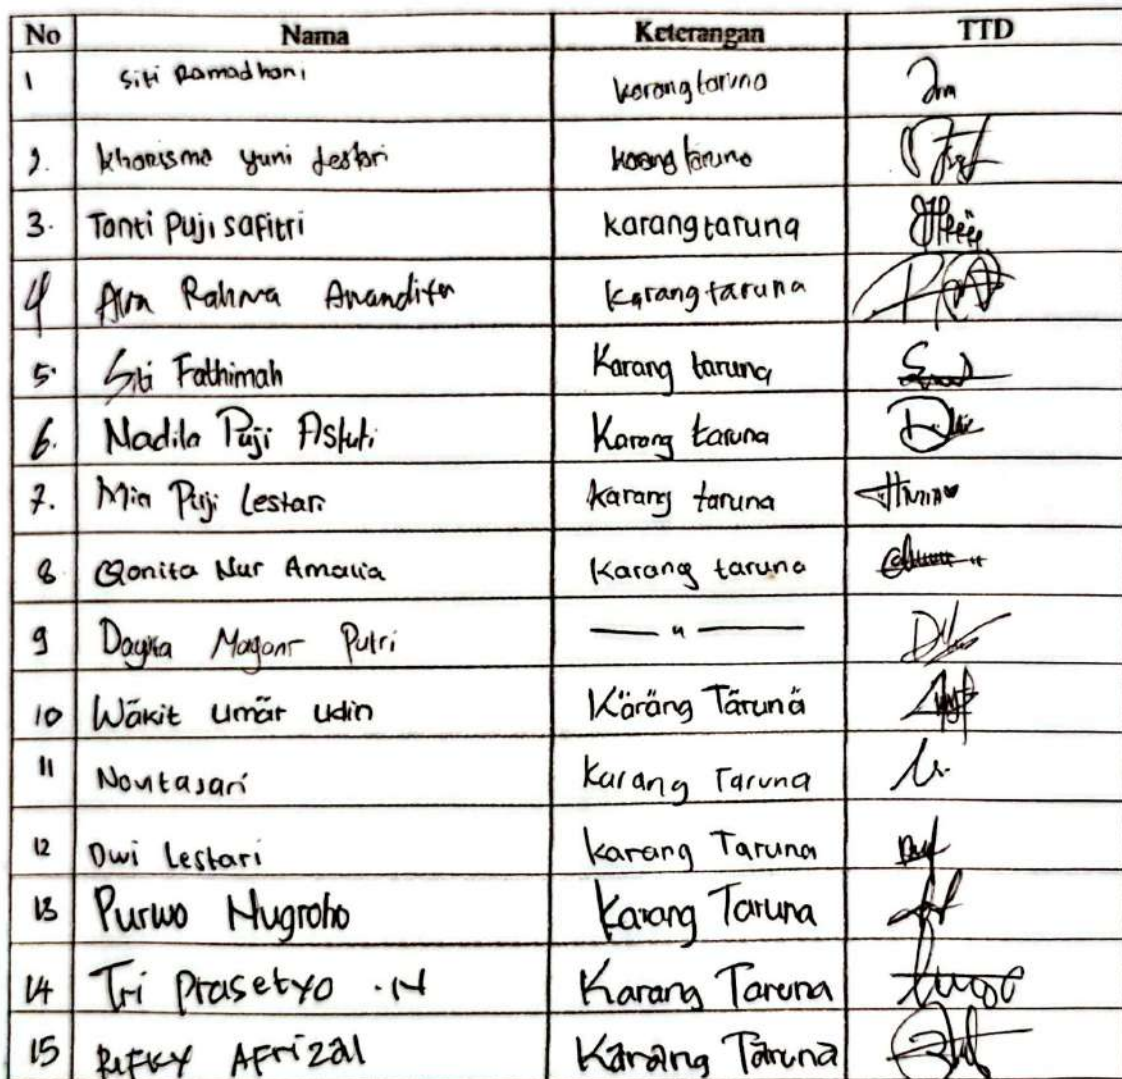 No Nama Keterangan TTD
1 Siti Ramadhani karang taruna
2. kharisma yuni lestari karang taruna
3. Tanti Puji safitri karang taruna
4 Rahma Anandita karang taruna
5. Siti Fathimah Karang taruna
6. Nadila Puji Astuti Karang taruna
7. Mia Puji Lestari karang taruna
8. Qonita Nur Amalia Karang taruna
9 Putri — " —
10 Wäkit umär udin Käräng Tärunä
11 Novitasari Karang Taruna
12 Dwi Lestari karang Taruna
13 Purwo Nugroho Karang Taruna
14 Tri Prasetyo .N Karang Taruna
15 RIFKY AFrizal Karang Taruna